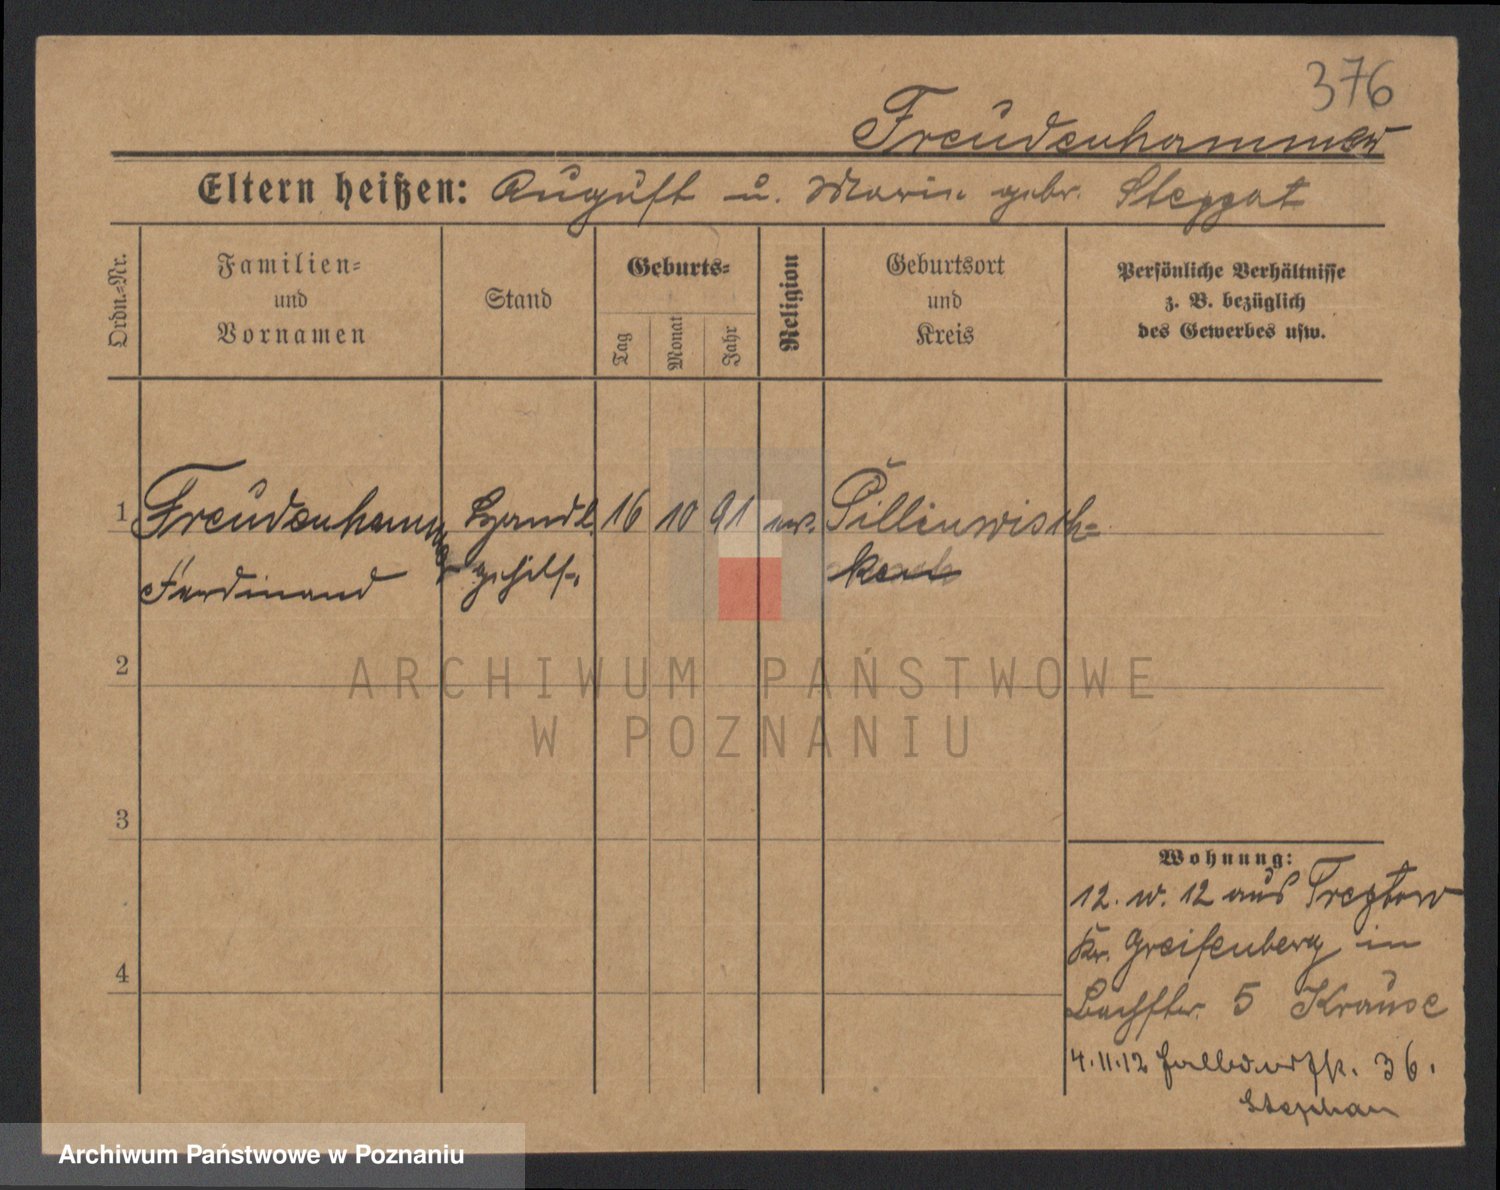 376
Freudenhammer
Eltern heißen: August u. Marie gebr. Steppat
Ordn.=Nr.
Familien=
und
Vornamen
Stand
Geburts=
Tag
Monat
Jahr
Religion
Geburtsort
und
Kreis
Persönliche Verhältnisse
z. B. bezüglich
des Gewerbes usw.
1 Freudenhammer Handl. 16 10 91 ev. Pillinwisch=
Ferdinand gehilf.
2
3
4
Wohnung:
12. 12 aus Treptow
Kr. Greifenberg in
Bachstr. 5 Krause
4.11.12 36.
Stephan
ARCHIWUM PAŃSTWOWE
W POZNANIU
Archiwum Państwowe w Poznaniu